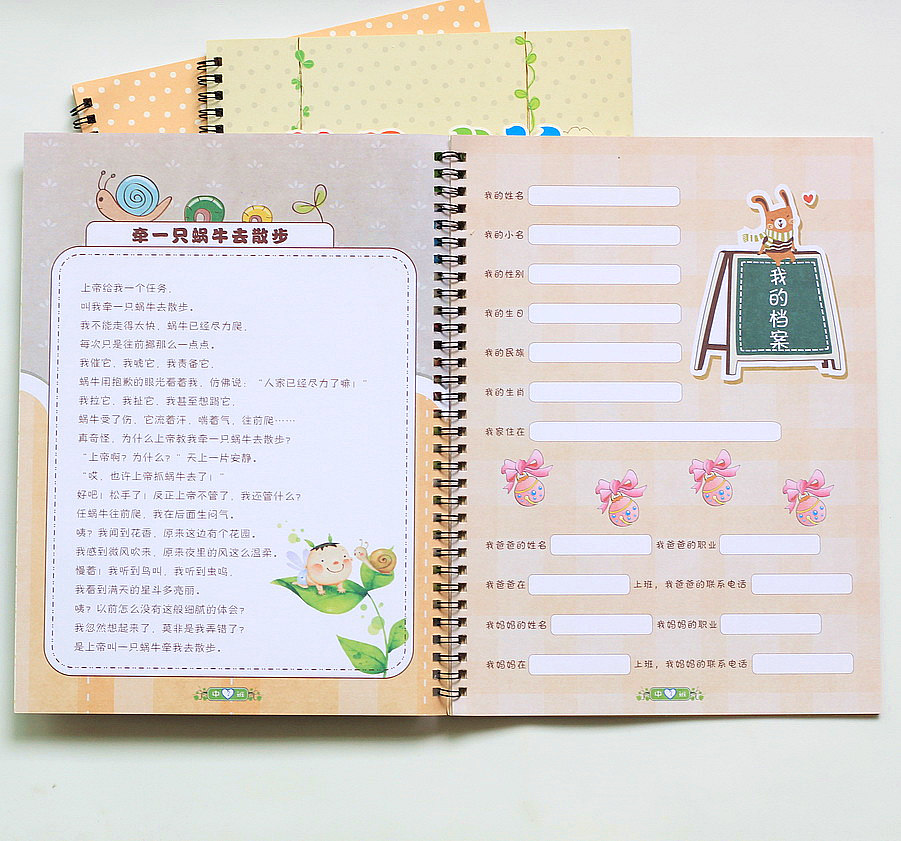 牵一只蜗牛去散步
上帝给我一个任务，
叫我牵一只蜗牛去散步。
我不能走得太快，蜗牛已经尽力爬，
每次只是往前挪那么一点点。
我催它，我唬它，我责备它，
蜗牛用抱歉的眼光看着我，仿佛说：“人家已经尽力了嘛！”
我拉它，我扯它，我甚至想踢它，
蜗牛受了伤，它流着汗，喘着气，往前爬……
真奇怪，为什么上帝教我牵一只蜗牛去散步？
“上帝啊？为什么？”天上一片安静。
“哎，也许上帝抓蜗牛去了！”
好吧！松手了！反正上帝不管了，我还管什么？
任蜗牛往前爬，我在后面生闷气。
咦？我闻到花香，原来这边有个花园。
我感到微风吹来，原来夜里的风这么温柔。
慢着！我听到鸟叫，我听到虫鸣，
我看到满天的星斗多亮丽。
咦？以前怎么没有这般细腻的体会？
我忽然想起来了，莫非是我弄错了？
是上帝叫一只蜗牛牵我去散步。
中 班
我的姓名
我的小名
我的性别
我的生日
我的民族
我的生肖
我家住在
我的档案
我爸爸的姓名 我爸爸的职业
我爸爸在 上班，我爸爸的联系电话
我妈妈的姓名 我妈妈的职业
我妈妈在 上班，我妈妈的联系电话
中 班